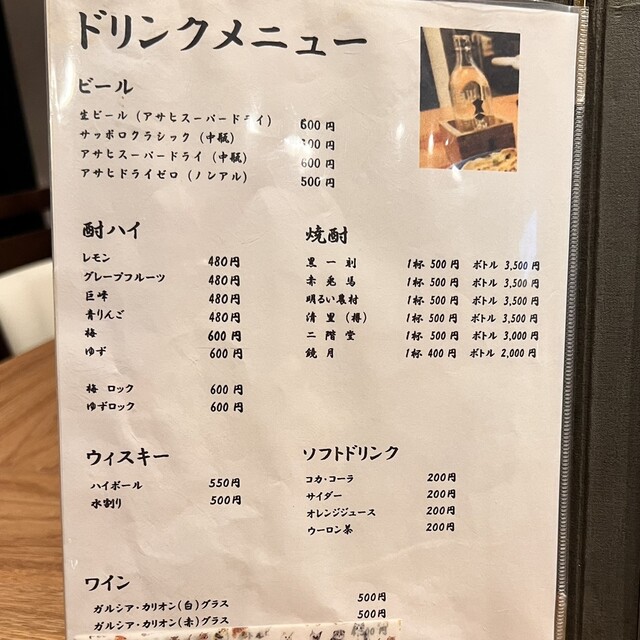 ドリンクメニュー
ビール
生ビール（アサヒスーパードライ） 600円
サッポロクラシック（中瓶） 円
アサヒスーパードライ（中瓶） 600円
アサヒドライゼロ（ノンアル） 500円
酎ハイ
レモン 480円
グレープフルーツ 480円
巨峰 480円
青りんご 480円
梅 600円
ゆず 600円
梅 ロック 600円
ゆずロック 600円
焼酎
里一刻 1杯 500円 ボトル 3,500円
赤兎馬 1杯 500円 ボトル 3,500円
明るい農村 1杯 500円 ボトル 3,500円
清里（樽） 1杯 500円 ボトル 3,500円
二階堂 1杯 500円 ボトル 3,000円
鏡月 1杯 400円 ボトル 2,000円
ウィスキー
ハイボール 550円
水割り 500円
ソフトドリンク
コカ・コーラ 200円
サイダー 200円
オレンジジュース 200円
ウーロン茶 200円
ワイン
ガルシア・カリオン（白）グラス 500円
ガルシア・カリオン（赤）グラス 500円